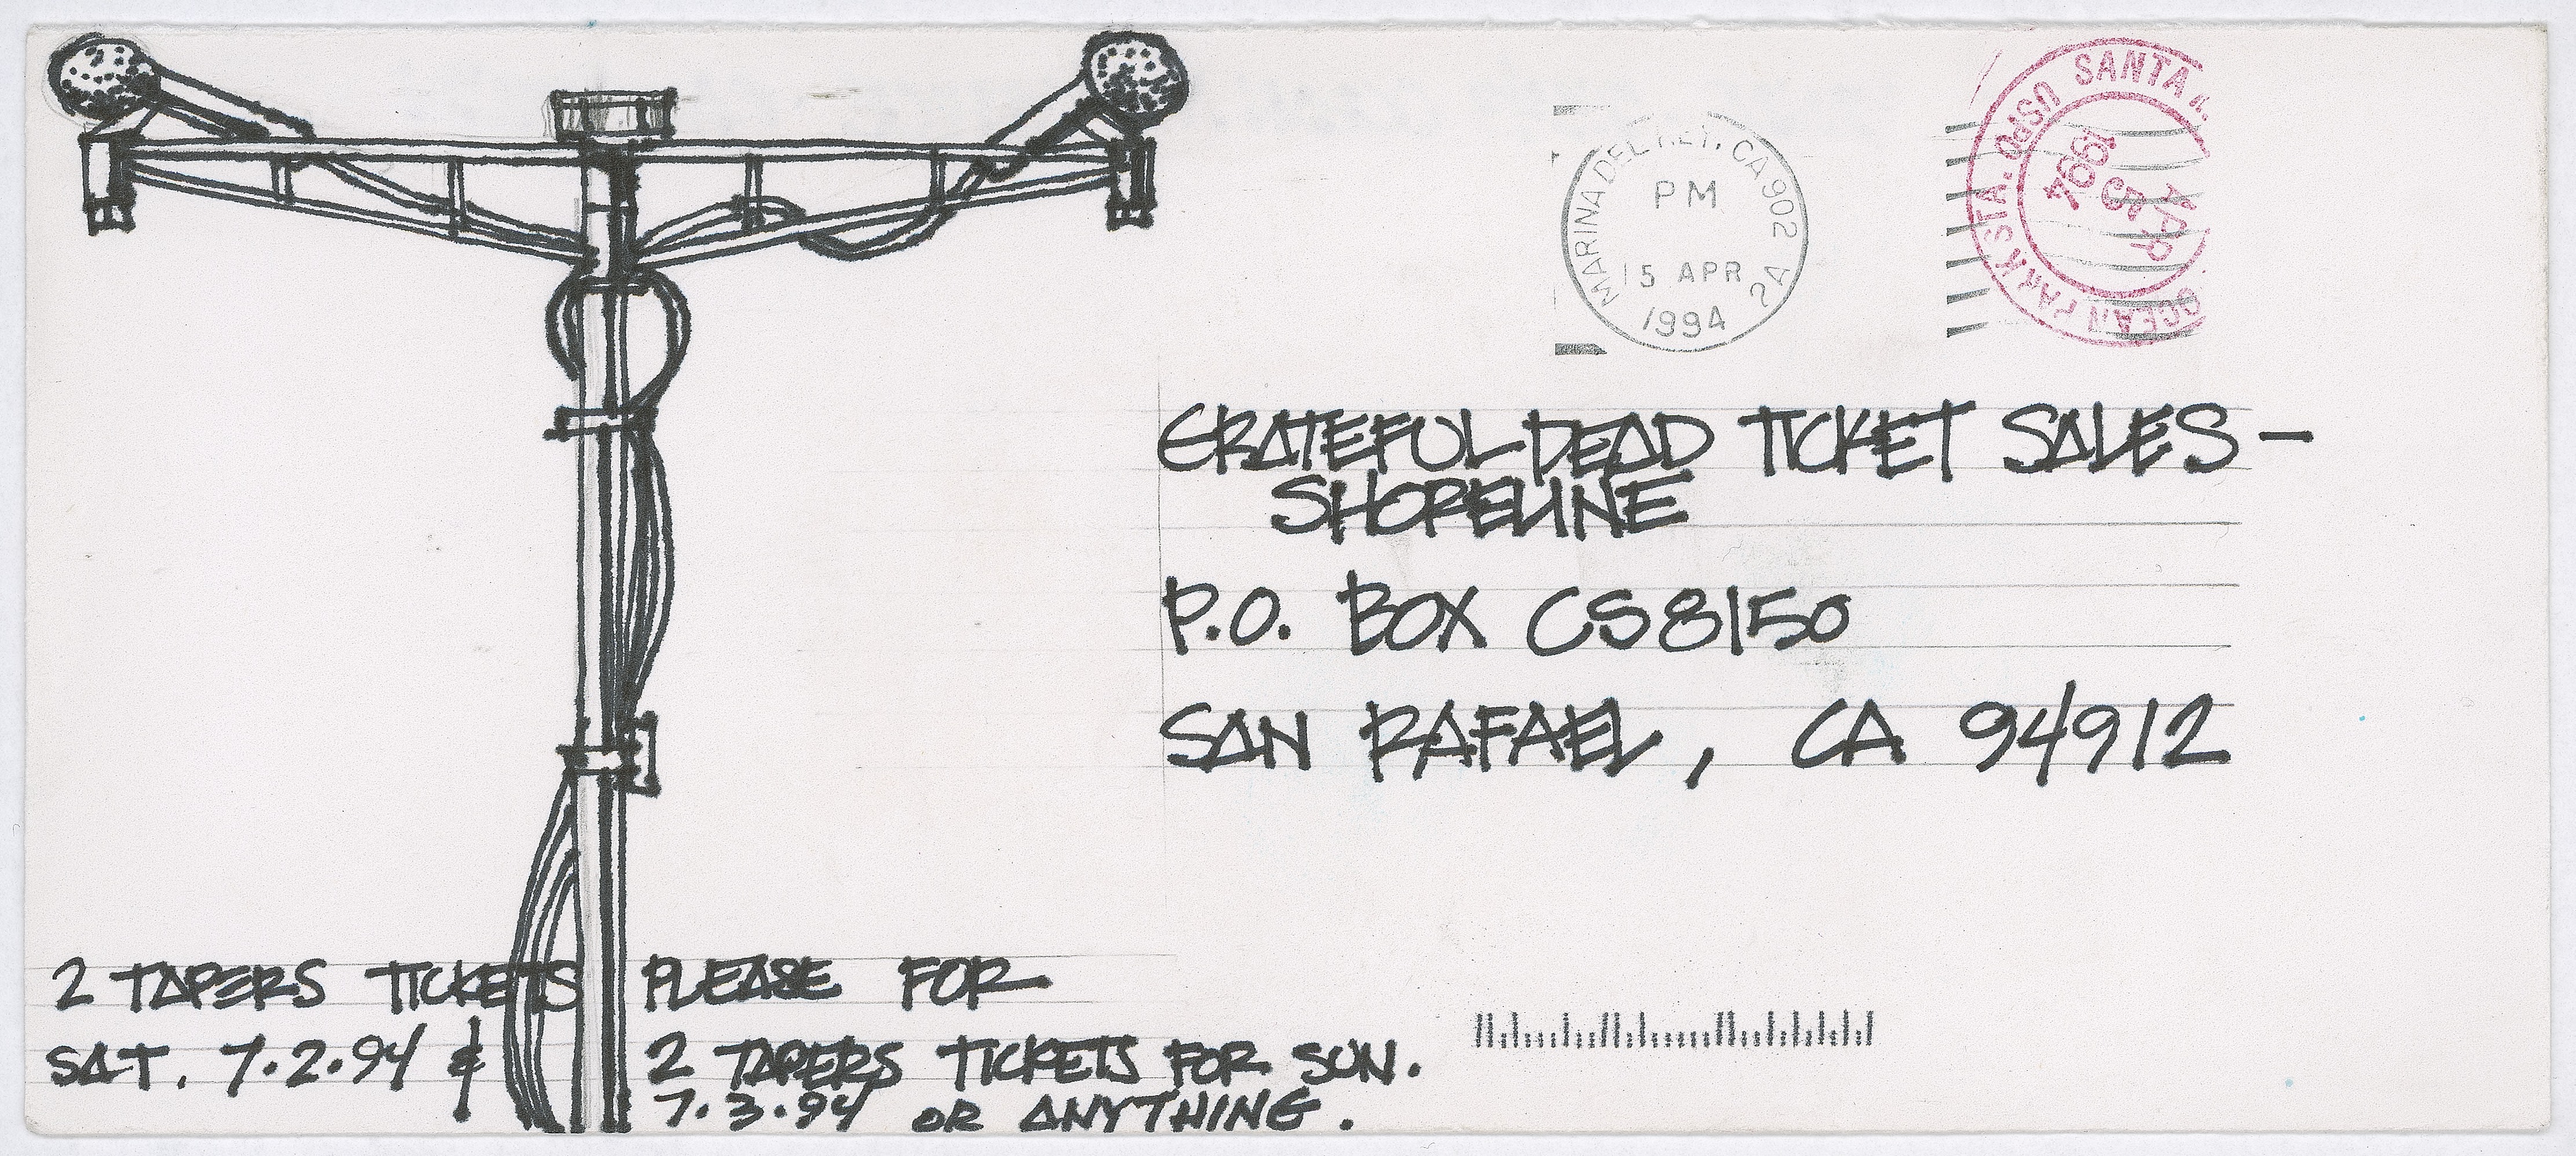 MARINA DEL REY, CA 902
PM
15 APR
1994
2A
SANTA
USPO
OCEAN PARK STA.
APR
15
1994
GRATEFUL DEAD TICKET SALES —
SHORELINE
P.O. BOX CS8150
SAN RAFAEL, CA 94912
2 TAPERS TICKETS PLEASE FOR
SAT. 7.2.94 & 2 TAPERS TICKETS FOR SUN.
7.3.94 OR ANYTHING.